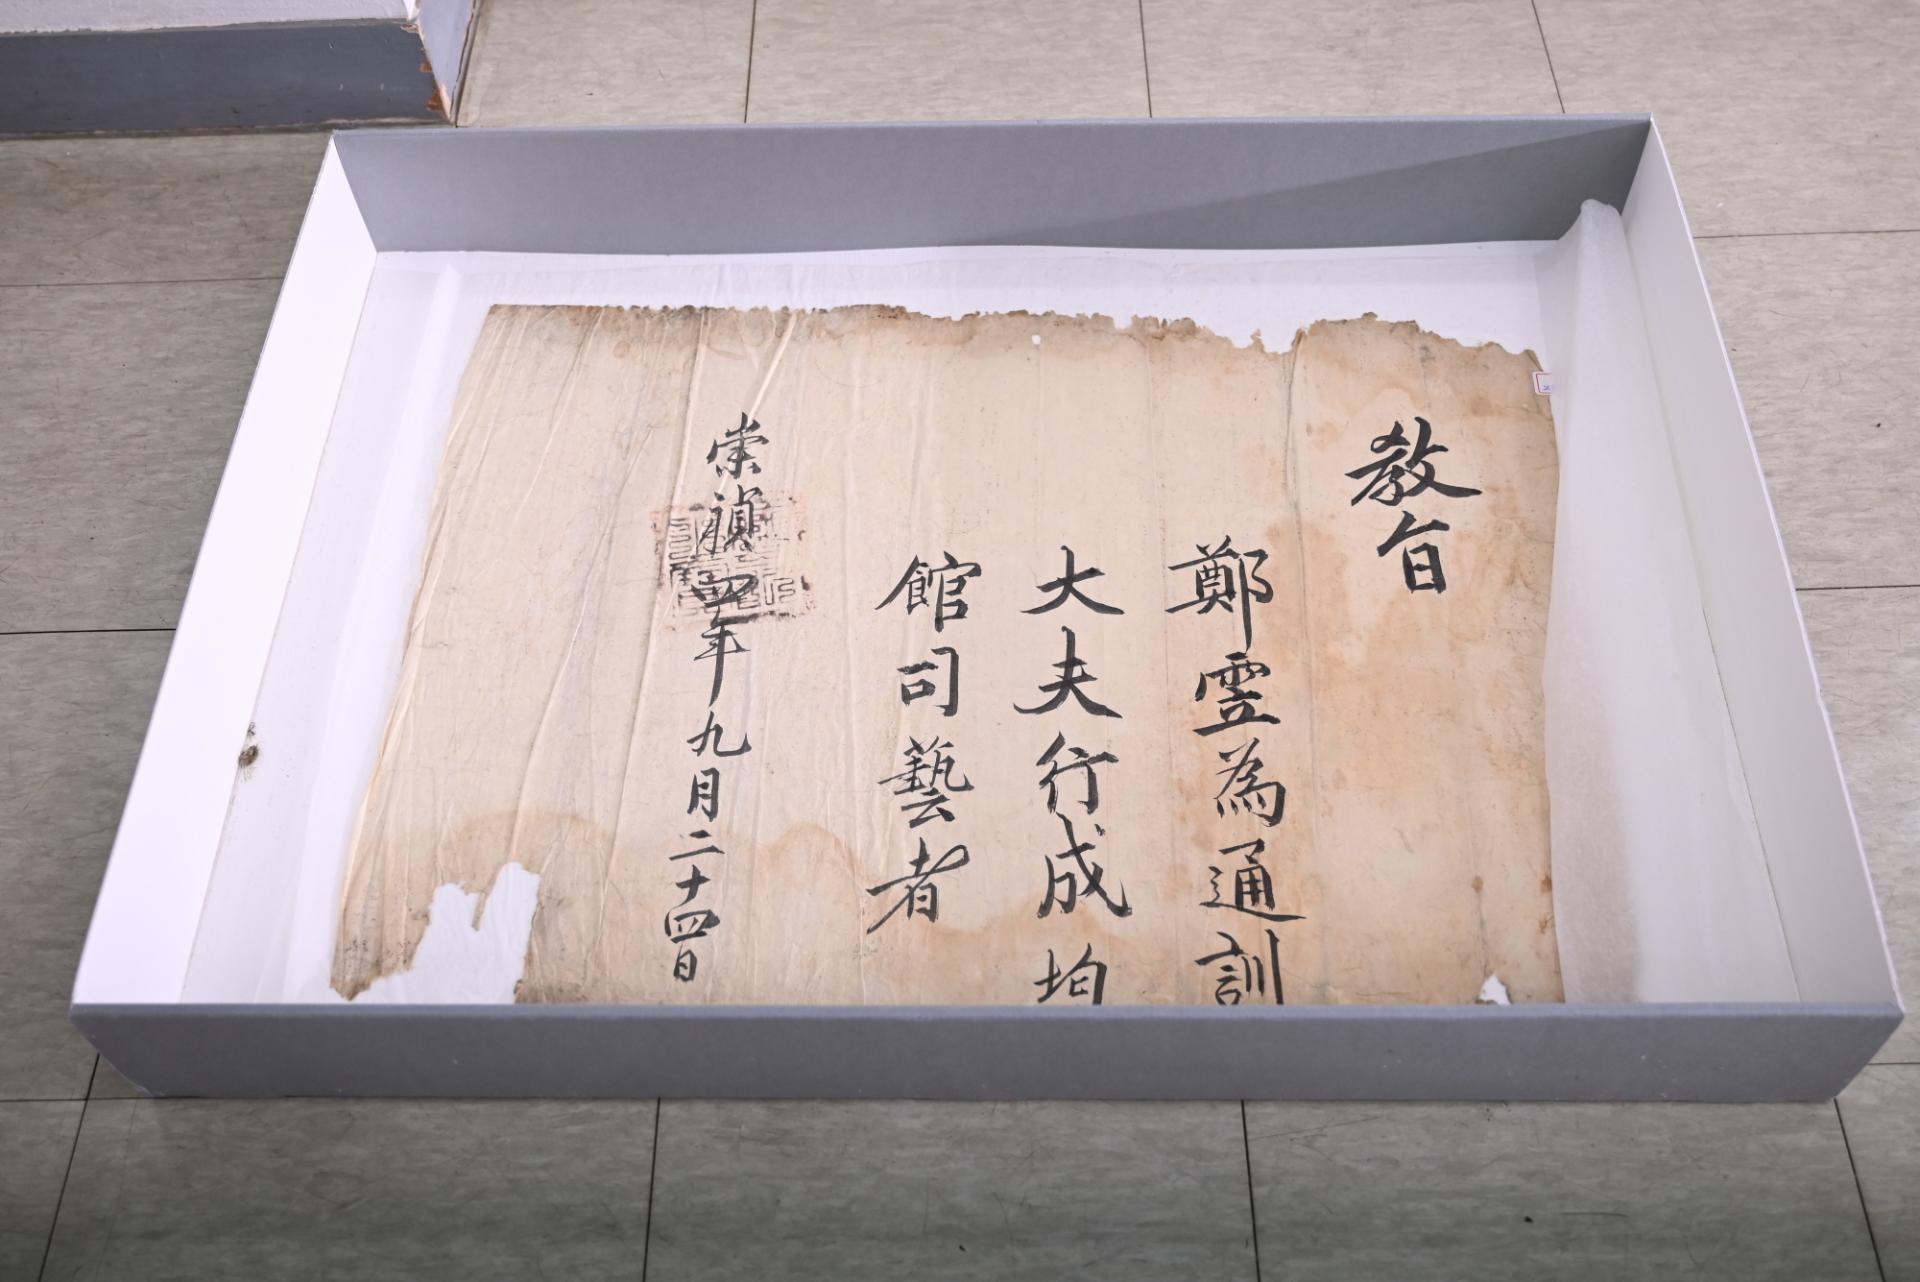 教旨
鄭雲為通訓
大夫行成均
館司藝者
崇禎四年九月二十四日